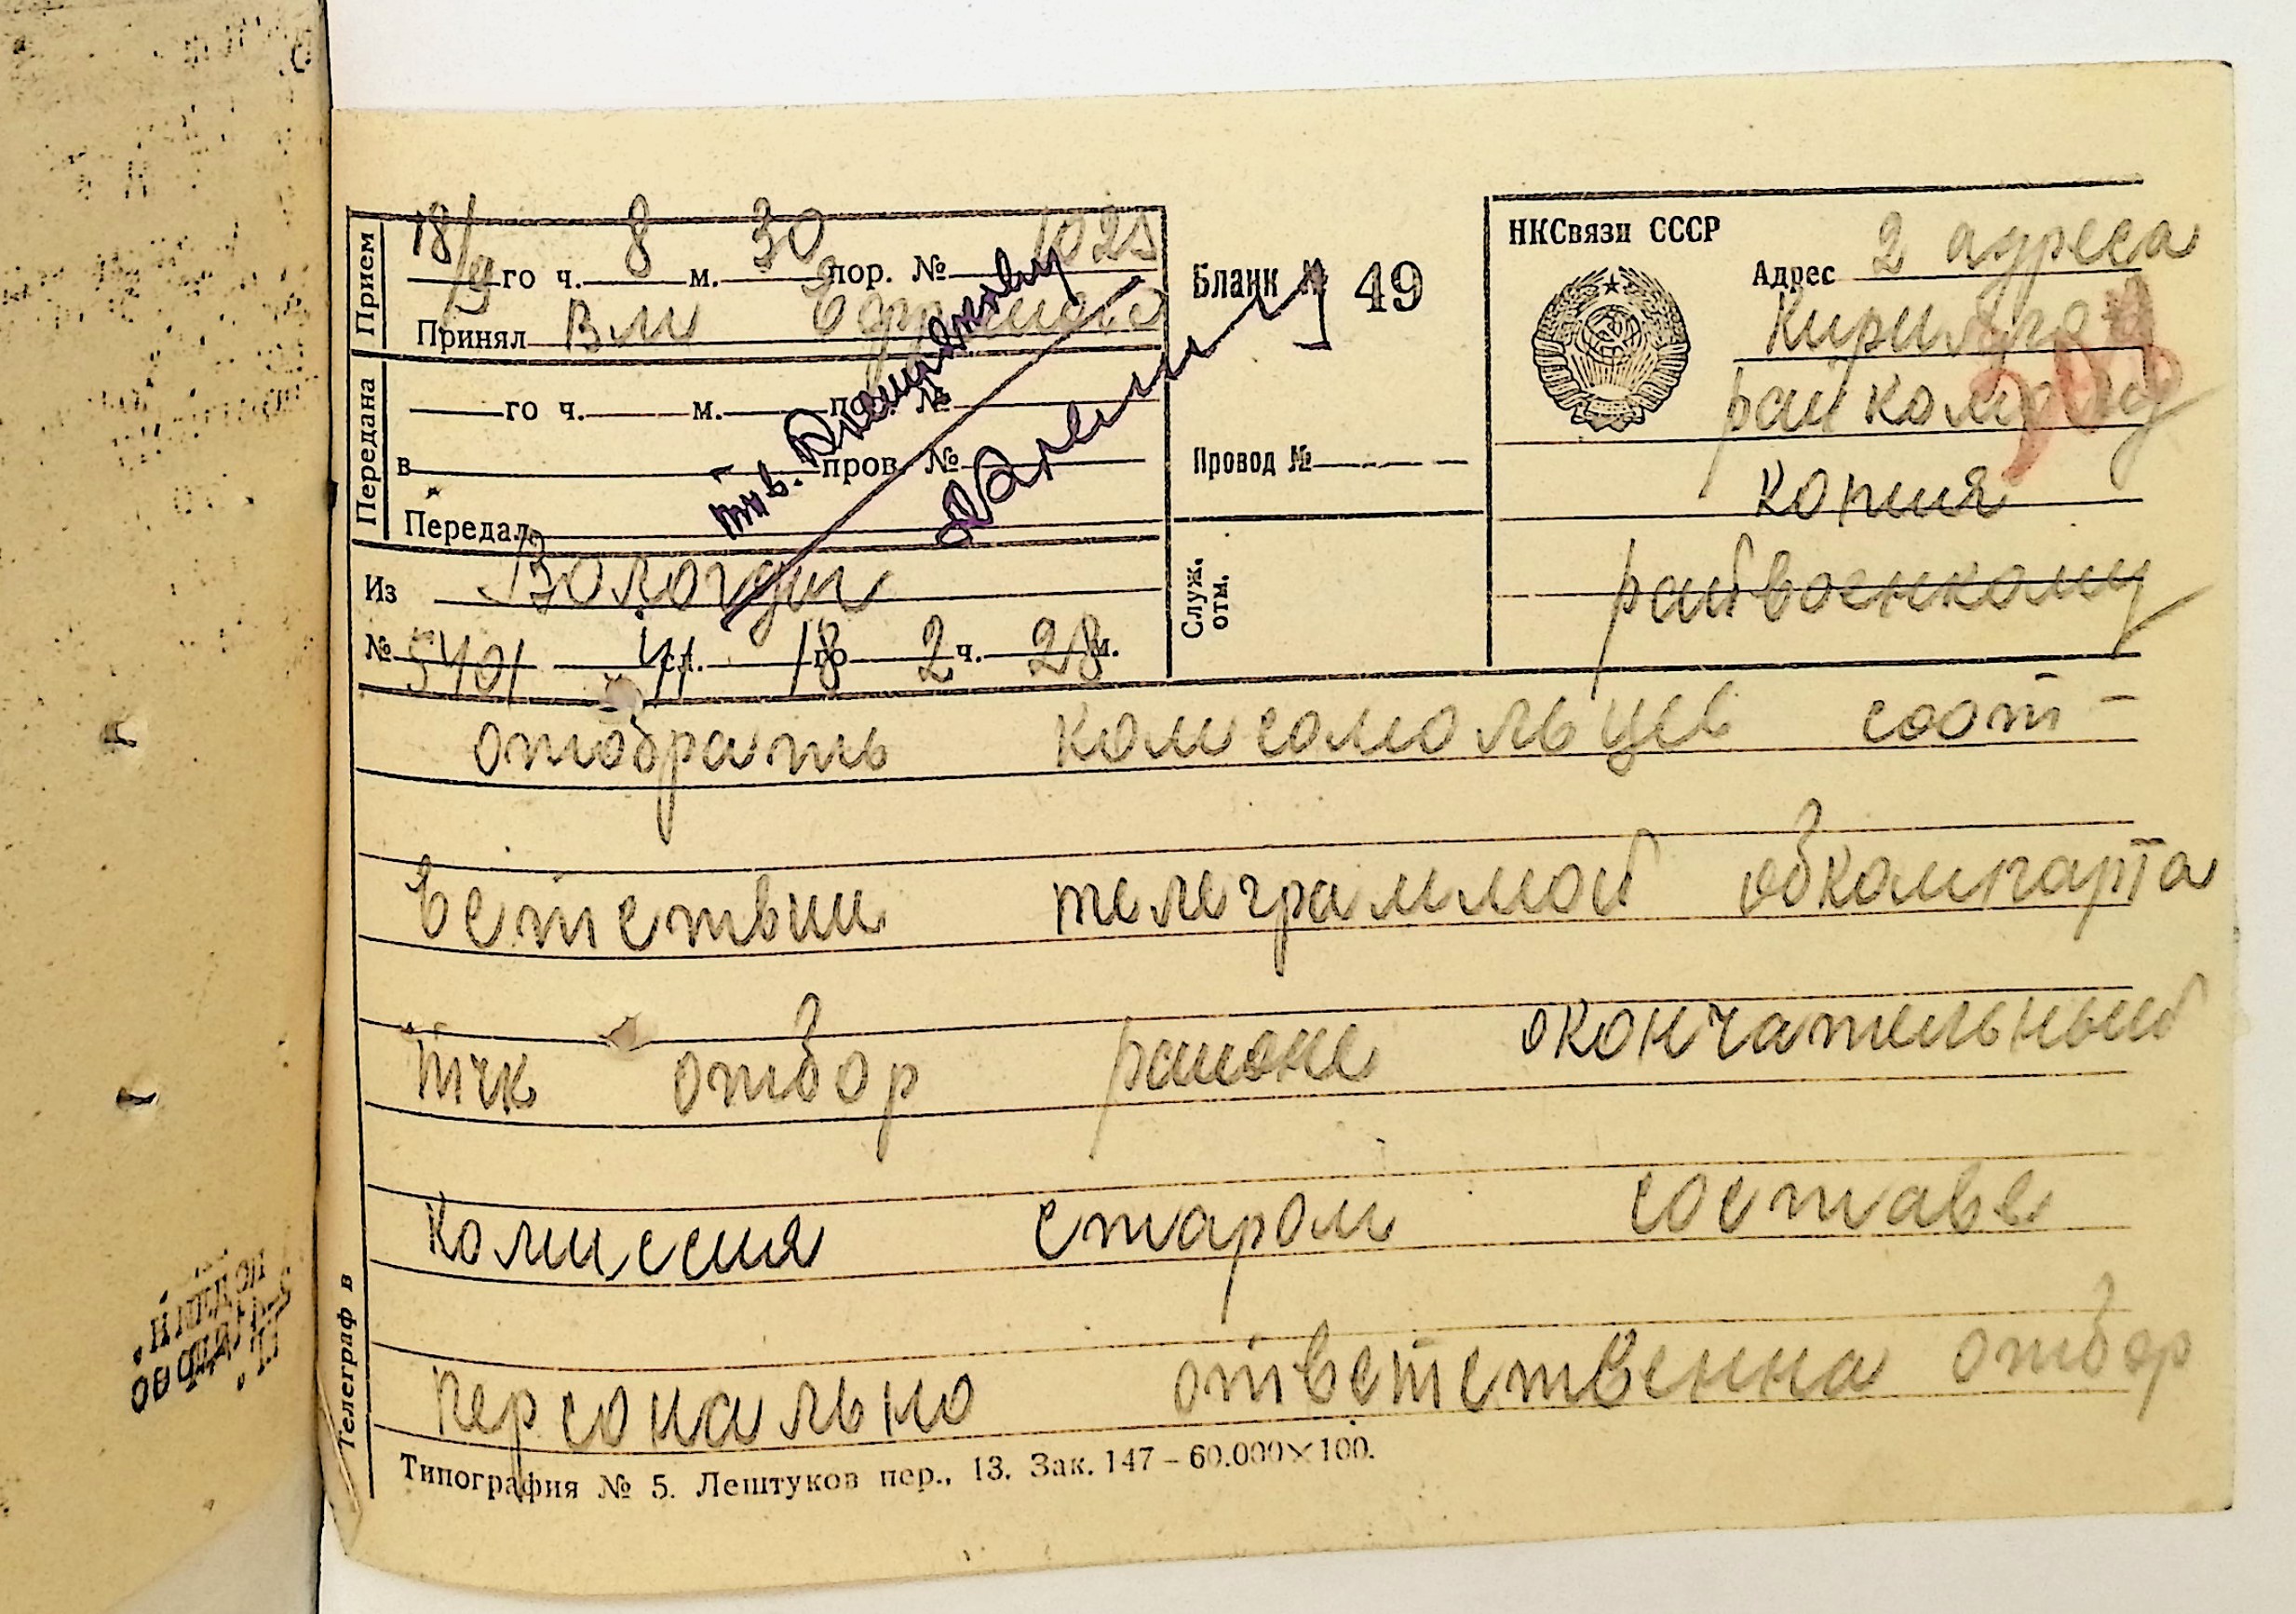 Прием
18/IV го ч. 8 м. 30 пор. № 1025
Принял Влм Ефимова
Передана
го ч. м. пор. №
в пров. №
Передал
Из Вологды
№ 5401 41 сл. 18 го 2 ч. 28 м.
тов.
Бланк № 49
Провод №
Служ. отм.
НКСвязи СССР
Адрес 2 адреса
райкому
копия
райвоенкому
отобрать комсомольцев соот-
ветствии телеграммой обкомпарта
тчк отбор районе окончательный
комиссия старом составе
персонально ответственна отбор
Телеграф в
Типография № 5. Лештуков пер., 13. Зак. 147 – 60.000×100.